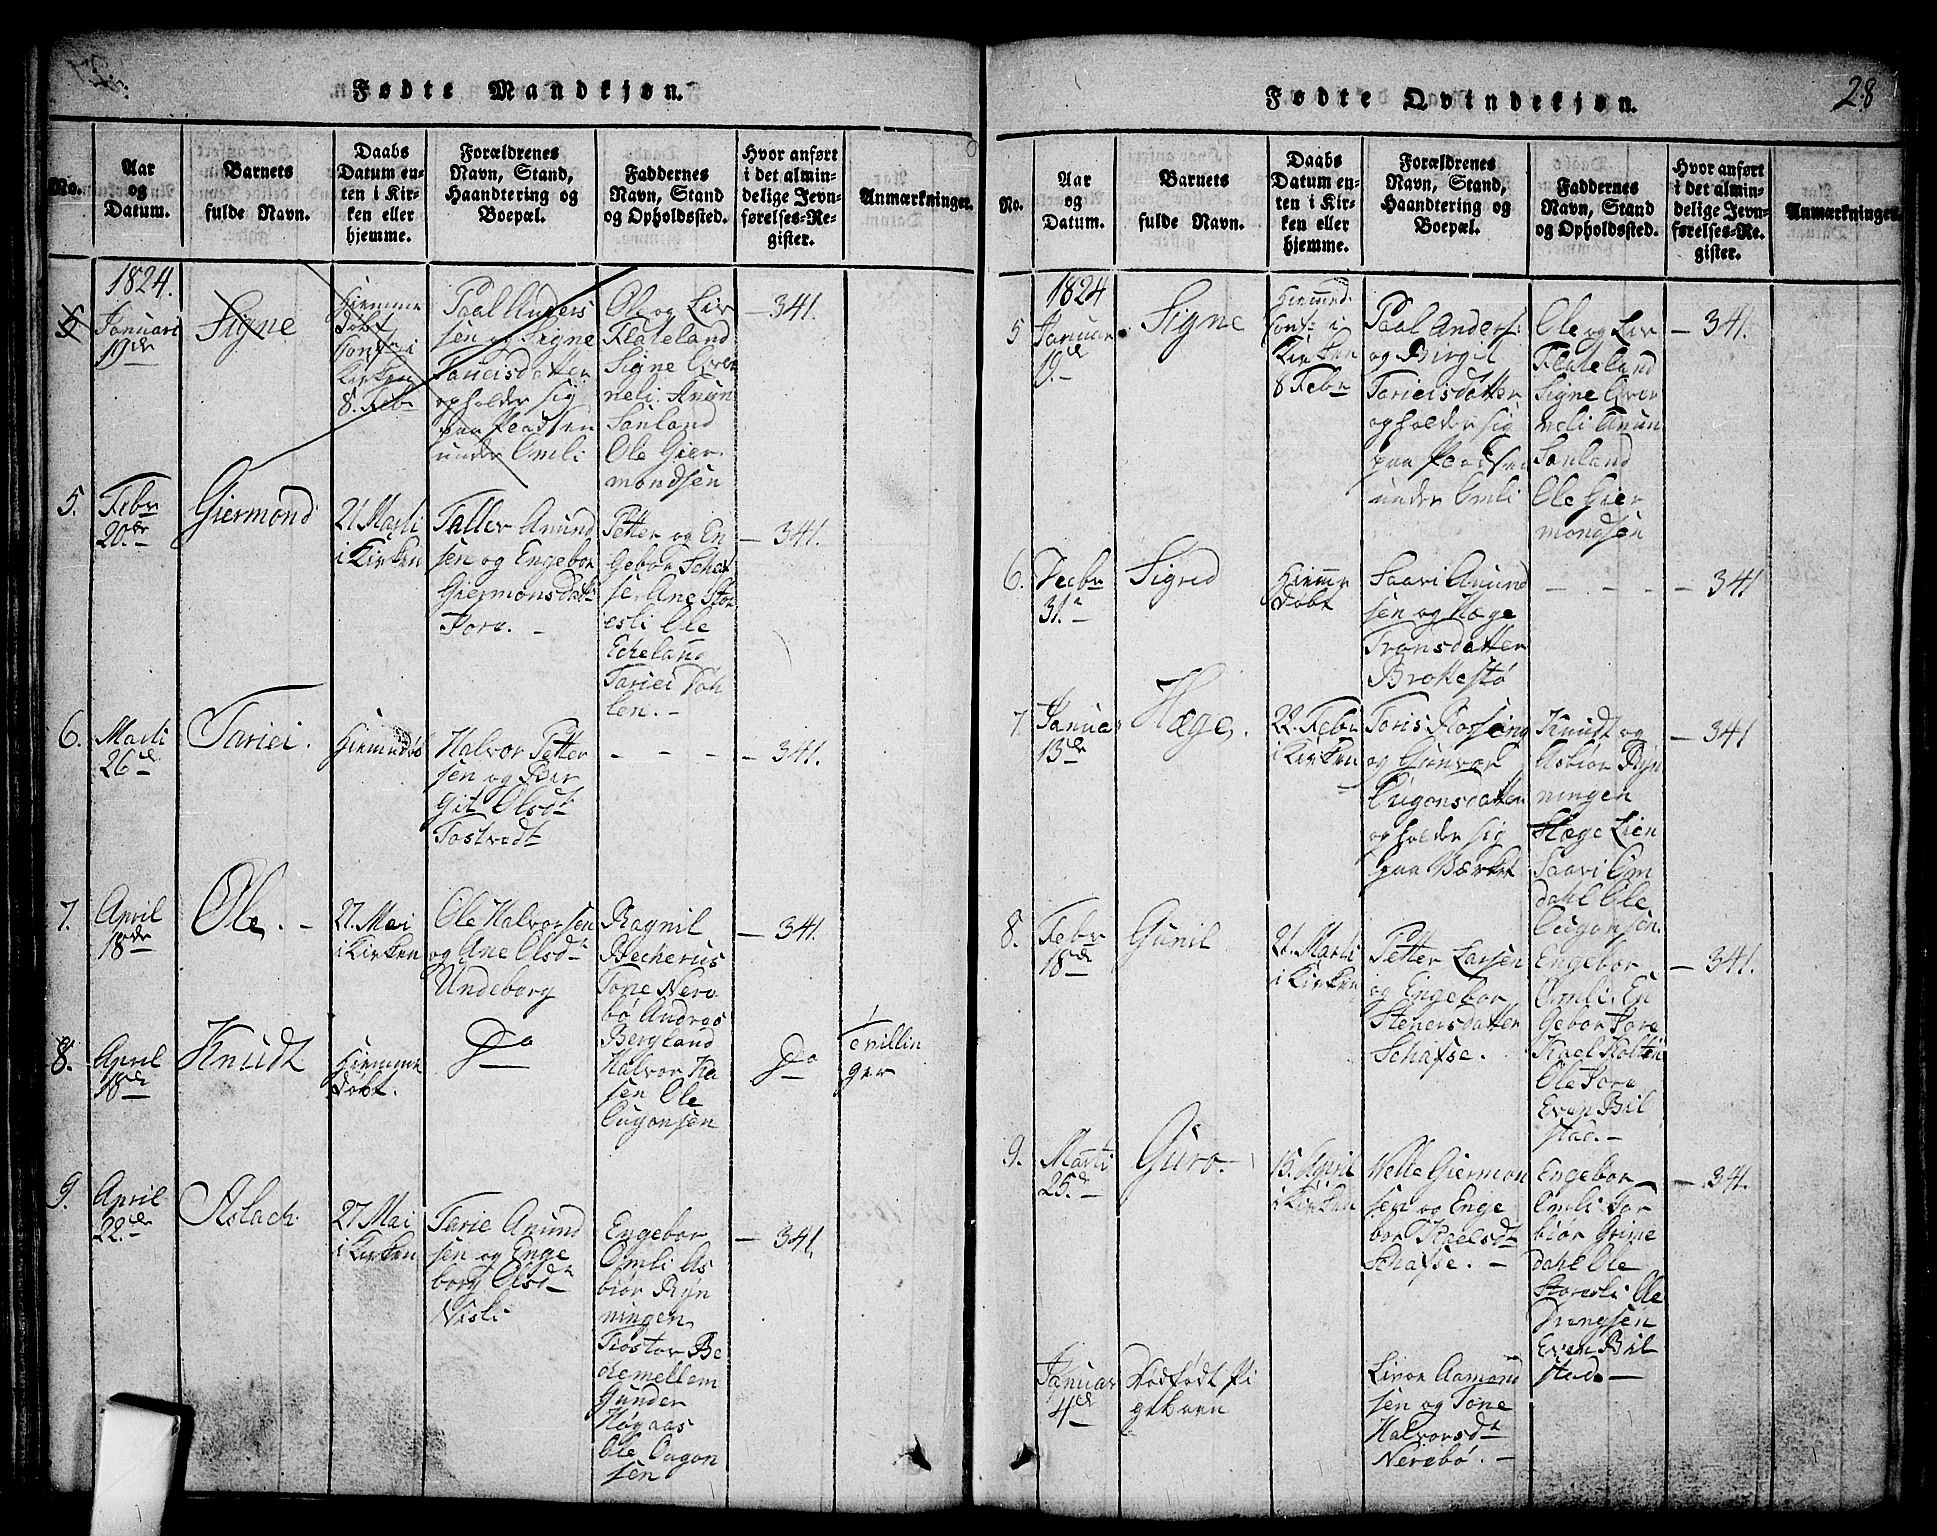 Fødte Mandkjøn.
No.
Aar
og
Datum.
Barnets
fulde Navn.
Daabs
Datum en-
ten i Kir-
ken eller
hjemme.
Forældrenes
Navn, Stand,
Haandtering og
Boepæl.
Faddernes
Navn, Stand
og Opholdssted.
Hvor anført
i det almin-
delige Jevn-
førelses-Re-
gister.
Anmærkninger.
1824.
Januari
19de
Signe
Hiemme
døbt
Conf: i
Kirken
8. Febr
Paal Anders
sen og Signe
Tarieisdatter
opholder sig
paa
under Omli
Ole og Liv
Flateland
Signe Over
neli Anun
Sanland
Ole Gier
mondsen
341.
5.
Febr
20de
Giermond
21 Marti
i Kirken
Tallev Anund
sen og Engebor
Giermonsdatt
Jore.
Petter og En
gebor Schaf
se Ane Stor
esli Ole
Echeland
Tariei Døh
len.
341.
6.
Marti
26de
Tariei.
Hiemmedøb
Halvor Petter
sen og Bir
git Olsdt
Tostvedt
341.
7.
April
18de
Ole.
27. Mai
i Kirken
Ole Halvorsen
og Ane Olsdt
Undeborg
Ragnil
Becherus
Tone Nere
bø Andreas
Bergland
Halvor Ha
sen Ole
Ougonsen
341.
8.
April
18de
Knudt
Hiemme
døbt.
Do
Do
Tvillin
ger
9.
April
22de
Aslach
27 Mai
i Kirken
Tarie Anund
sen og Enge
borg Olsdt
Visli
Engebor
Omli As
biør Røn
ningen
Tiøstov Be
chemellem
Gunder
Høgaas
Ole Ougon
sen
341.
Fødte Qvindekjøn.
28
No.
Aar
og
Datum.
Barnets
fulde Navn.
Daabs
Datum en-
ten i Kir-
ken eller
hjemme.
Forældrenes
Navn, Stand,
Haandtering og
Boepæl.
Faddernes
Navn, Stand
og Opholdssted.
Hvor anført
i det almin-
delige Jevn-
førelses-Re-
gister.
Anmærkninger.
1824
5
Januar
19.
Signe
Hiemmed.
Conf: i
Kirken
8 Febr
Paal Anders:
og Birgit
Tarieisdatter
opholder sig
paa
under Omli
Ole og Liv
Flateland
Signe Over
neli Anun
Sanland
Ole Gier
mondsen
341.
6.
Decbr
31.
Sigred
Hiemme
døbt
Saavi Anund
sen og Hæge
Tronsdatter
Brottestø
341
7.
Januar
13de
Hæge.
22. Febr
i Kirken
og Gunvor
Ougonsdatter
opholder sig
paa
Knudt og
Asbiør Røn
ningen
Hæge Lien
Saavi Om
dahl Ole
Ougonsen.
341
8.
Febr
18de
Gunil
21. Marti
i Kirken
Petter Larsen
og Engebor
Stenersdatter
Schafse.
Engebor
Omli. En
gebor Jore
Kael Kolten
Ole Jore
Even Bil
stad.
341.
9.
Marti
25de
Guro.
15. April
i Kirken
Nelle Giermon
sen og Enge
bor Kaelsdt
Schafse.
Engebor
Omli Tor
biør Grime
dahl Ole
Storesli Ole
Drengsen
Even Bil
stad.
341.
Januar
4de
Dødfødt Pi
gebarn
Livor Aamond
sen og Tone
Halvorsdt
Nerebø.